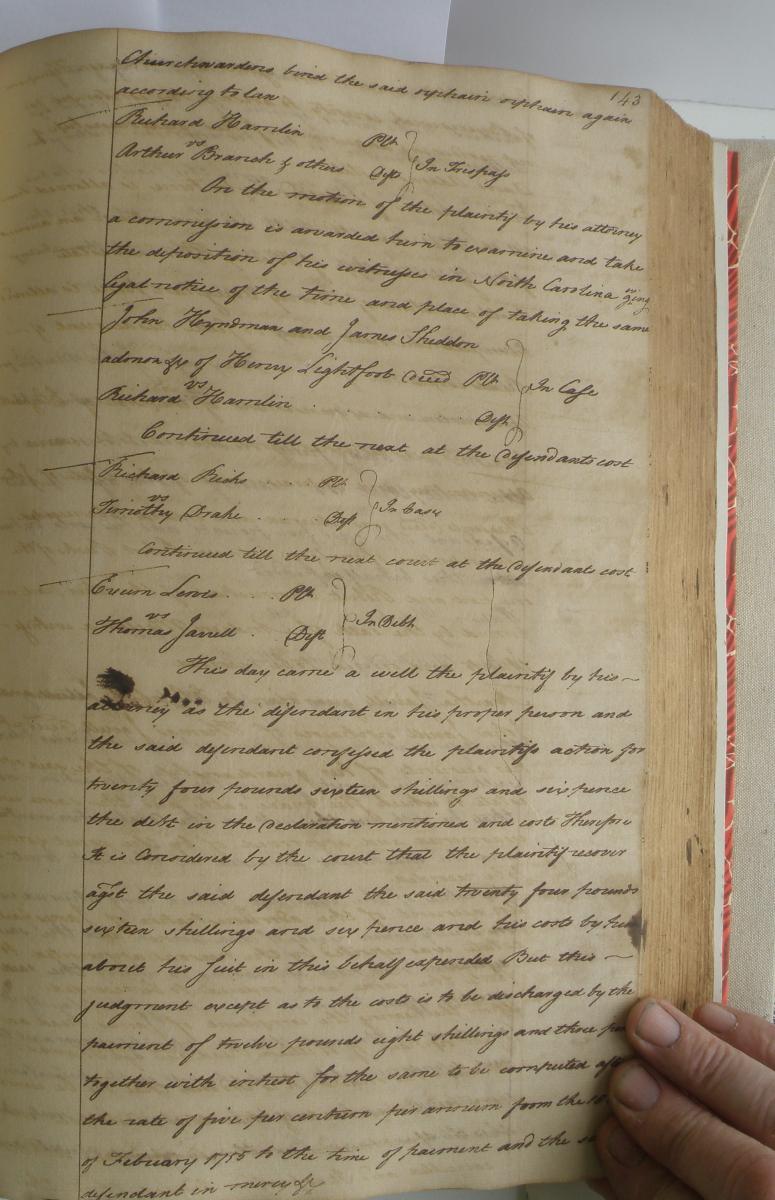 143
Churchwardens bind the said orphan orphan again
according to law
Richard Hamlin Plt
vs
Arthur Branch & others Deft In Trespass
On the motion of the plaintif by his attorney
a commission is awarded him to examine and take
the deposition of his witnesses in North Carolina giving
legal notice of the time and place of taking the same
John Hyndman and James Sheddon
admors &c of Henry Lightfoot deced Plt
vs In Case
Richard Hamlin Deft
Continued till the next at the defendants cost
Richard Ricks Plt
vs In Case
Timothy Drake Deft
Continued till the next court at the defendants cost
Exum Lewis Plt
vs In Debt
Thomas Jarrell Deft
This day came a well the plaintif by his
attorney as the defendant in his proper person and
the said defendant confessed the plaintifs action for
twenty four pounds sixteen shillings and six pence
the debt in the Declaration mentioned and costs Therefore
It is Considered by the court that the plaintif recover
agst the said defendant the said twenty four pounds
sixteen shillings and six pence and his costs by him
about his suit in this behalf expended But this
judgment except as to the costs is to be discharged by the
paiment of twelve pounds eight shillings and three
together with intrest for the same to be computed
the rate of five per centum per annum from the
of February 1755 to the time of paiment and the
defendant in mercy &c